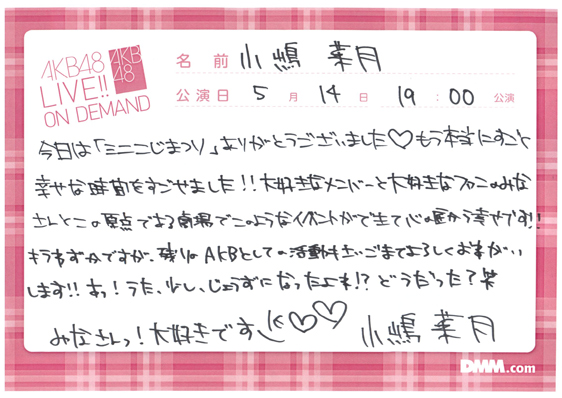 AKB48
LIVE!!
ON DEMAND
AKB
48
名前 小嶋 菜月
公演日 5月 14日 19:00 公演
今日は「ミニこじまつり」ありがとうございました♡もう本当にすごく
幸せな時間をすごせました!!大好きなメンバーと大好きなファンのみな
さんとこの原点である劇場でこのようなイベントができて心の底から幸せです!!
もうわずかですが、残りのAKBとしての活動もさいごまでよろしくお願い
します!!あっ!うた、少し、じょうずになったよね!?どうだった?笑
みなさんっ!大好きです♡♡ 小嶋 菜月
DMM.com